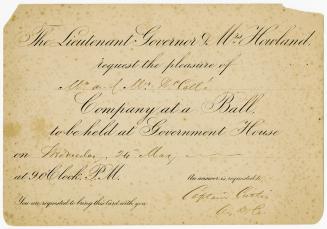 The Lieutenant Governor & Mrs. Howland
request the pleasure of
Mr. and Mrs.
Company at a Ball,
to be held at Government House
on Wednesday 24 May
at 9 O'Clock, P.M.
An answer is requested to
Captain Curtis
You are requested to bring this card with you
A.D.C.